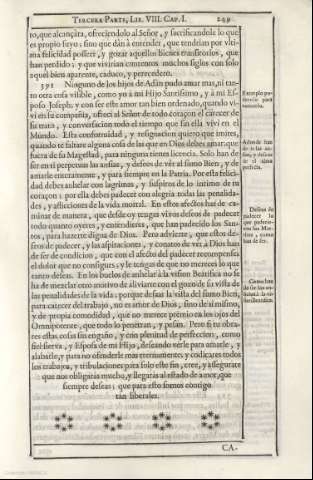 TERCERA PARTE, LIB. VIII. CAP. I. 299
to, que alcançara, ofreciendolo al Señor, y sacrificandole lo que
es propio suyo; sino que dan à entender, que tendrian por vlti-
ma felicidad posseer, y gozar aquellos bienes transitorios, que
han perdido; y que vivirian contentos muchos siglos con solo
aquel bien aparente, caduco, y perecedero.
391 Ninguno de los hijos de Adan pudo amar mas, ni tan-
to otra cosa visible, como yo à mi Hijo Santissimo, y à mi Es-
poso Joseph; y con ser este amor tan bien ordenado, quando vi-
vi en su compañia, ofreci al Señor de todo coraçon el carecer de
su trato, y conversacion todo el tiempo que sin ella vivi en el
Mundo. Esta conformidad, y resignacion quiero que imites,
quando te faltare alguna cosa de las que en Dios debes amar; que
fuera de su Magestad, para ninguna tienes licencia. Solo han de
ser en ti perpetuas las ansias, y deseos de vèr al sumo Bien, y de
amarle eternamente, y para siempre en la Patria. Por esta felici-
dad debes anhelar con lagrimas, y suspiros de lo intimo de tu
coraçon; por ella debes padecer con alegria todas las penalida-
des, y aflicciones de la vida mortal. En estos afectos has de ca-
minar de manera, que desde oy tengas vivos deseos de padecer
todo quanto oyeres, y entendieres, que han padecido los San-
tos, para hazerte digna de Dios. Pero advierte, que estos de-
seos de padecer, y las aspiraciones, y conatos de vèr à Dios han
de ser de condicion, que con el afecto del padecer recompenses
el dolor que no consigues; y le tengas de que no mereces lo que
tanto deseas. En los buelos de anhelar à la vision Beatifica no se
ha de mezclar otro motivo de aliviarte con el gozo de su vista de
las penalidades de la vida; porque desear la vista del sumo Bien,
para carecer del trabajo, no es amor de Dios, sino de sì mismo,
y de propia comodidad, que no merece premio en los ojos del
Omnipotente, que todo lo penetran, y pesan. Pero si tu obra-
res estas cosas sin engaño, y con plenitud de perfeccion, como
fiel sierva, y Esposa de mi Hijo, deseando verle para amarle, y
alabarle, y para no ofenderle mas eternamente, y codicares todos
los trabajos, y tribulaciones para solo este fin, cree, y assegurate
que nos obligaràs mucho, y llegaràs al estado de amor, que
siempre deseas; que para esto somos contigo
tan liberales.
CA-